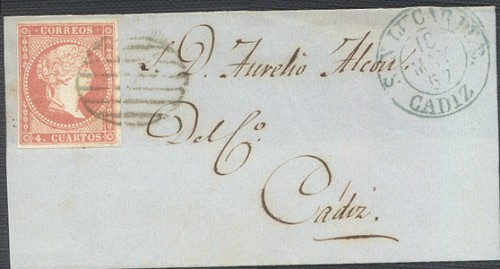 CORREOS
4. CUARTOS
S. D. Aurelio Alcon
Del Co.
Cádiz.
SANLUCAR DE B.
10
57
CADIZ